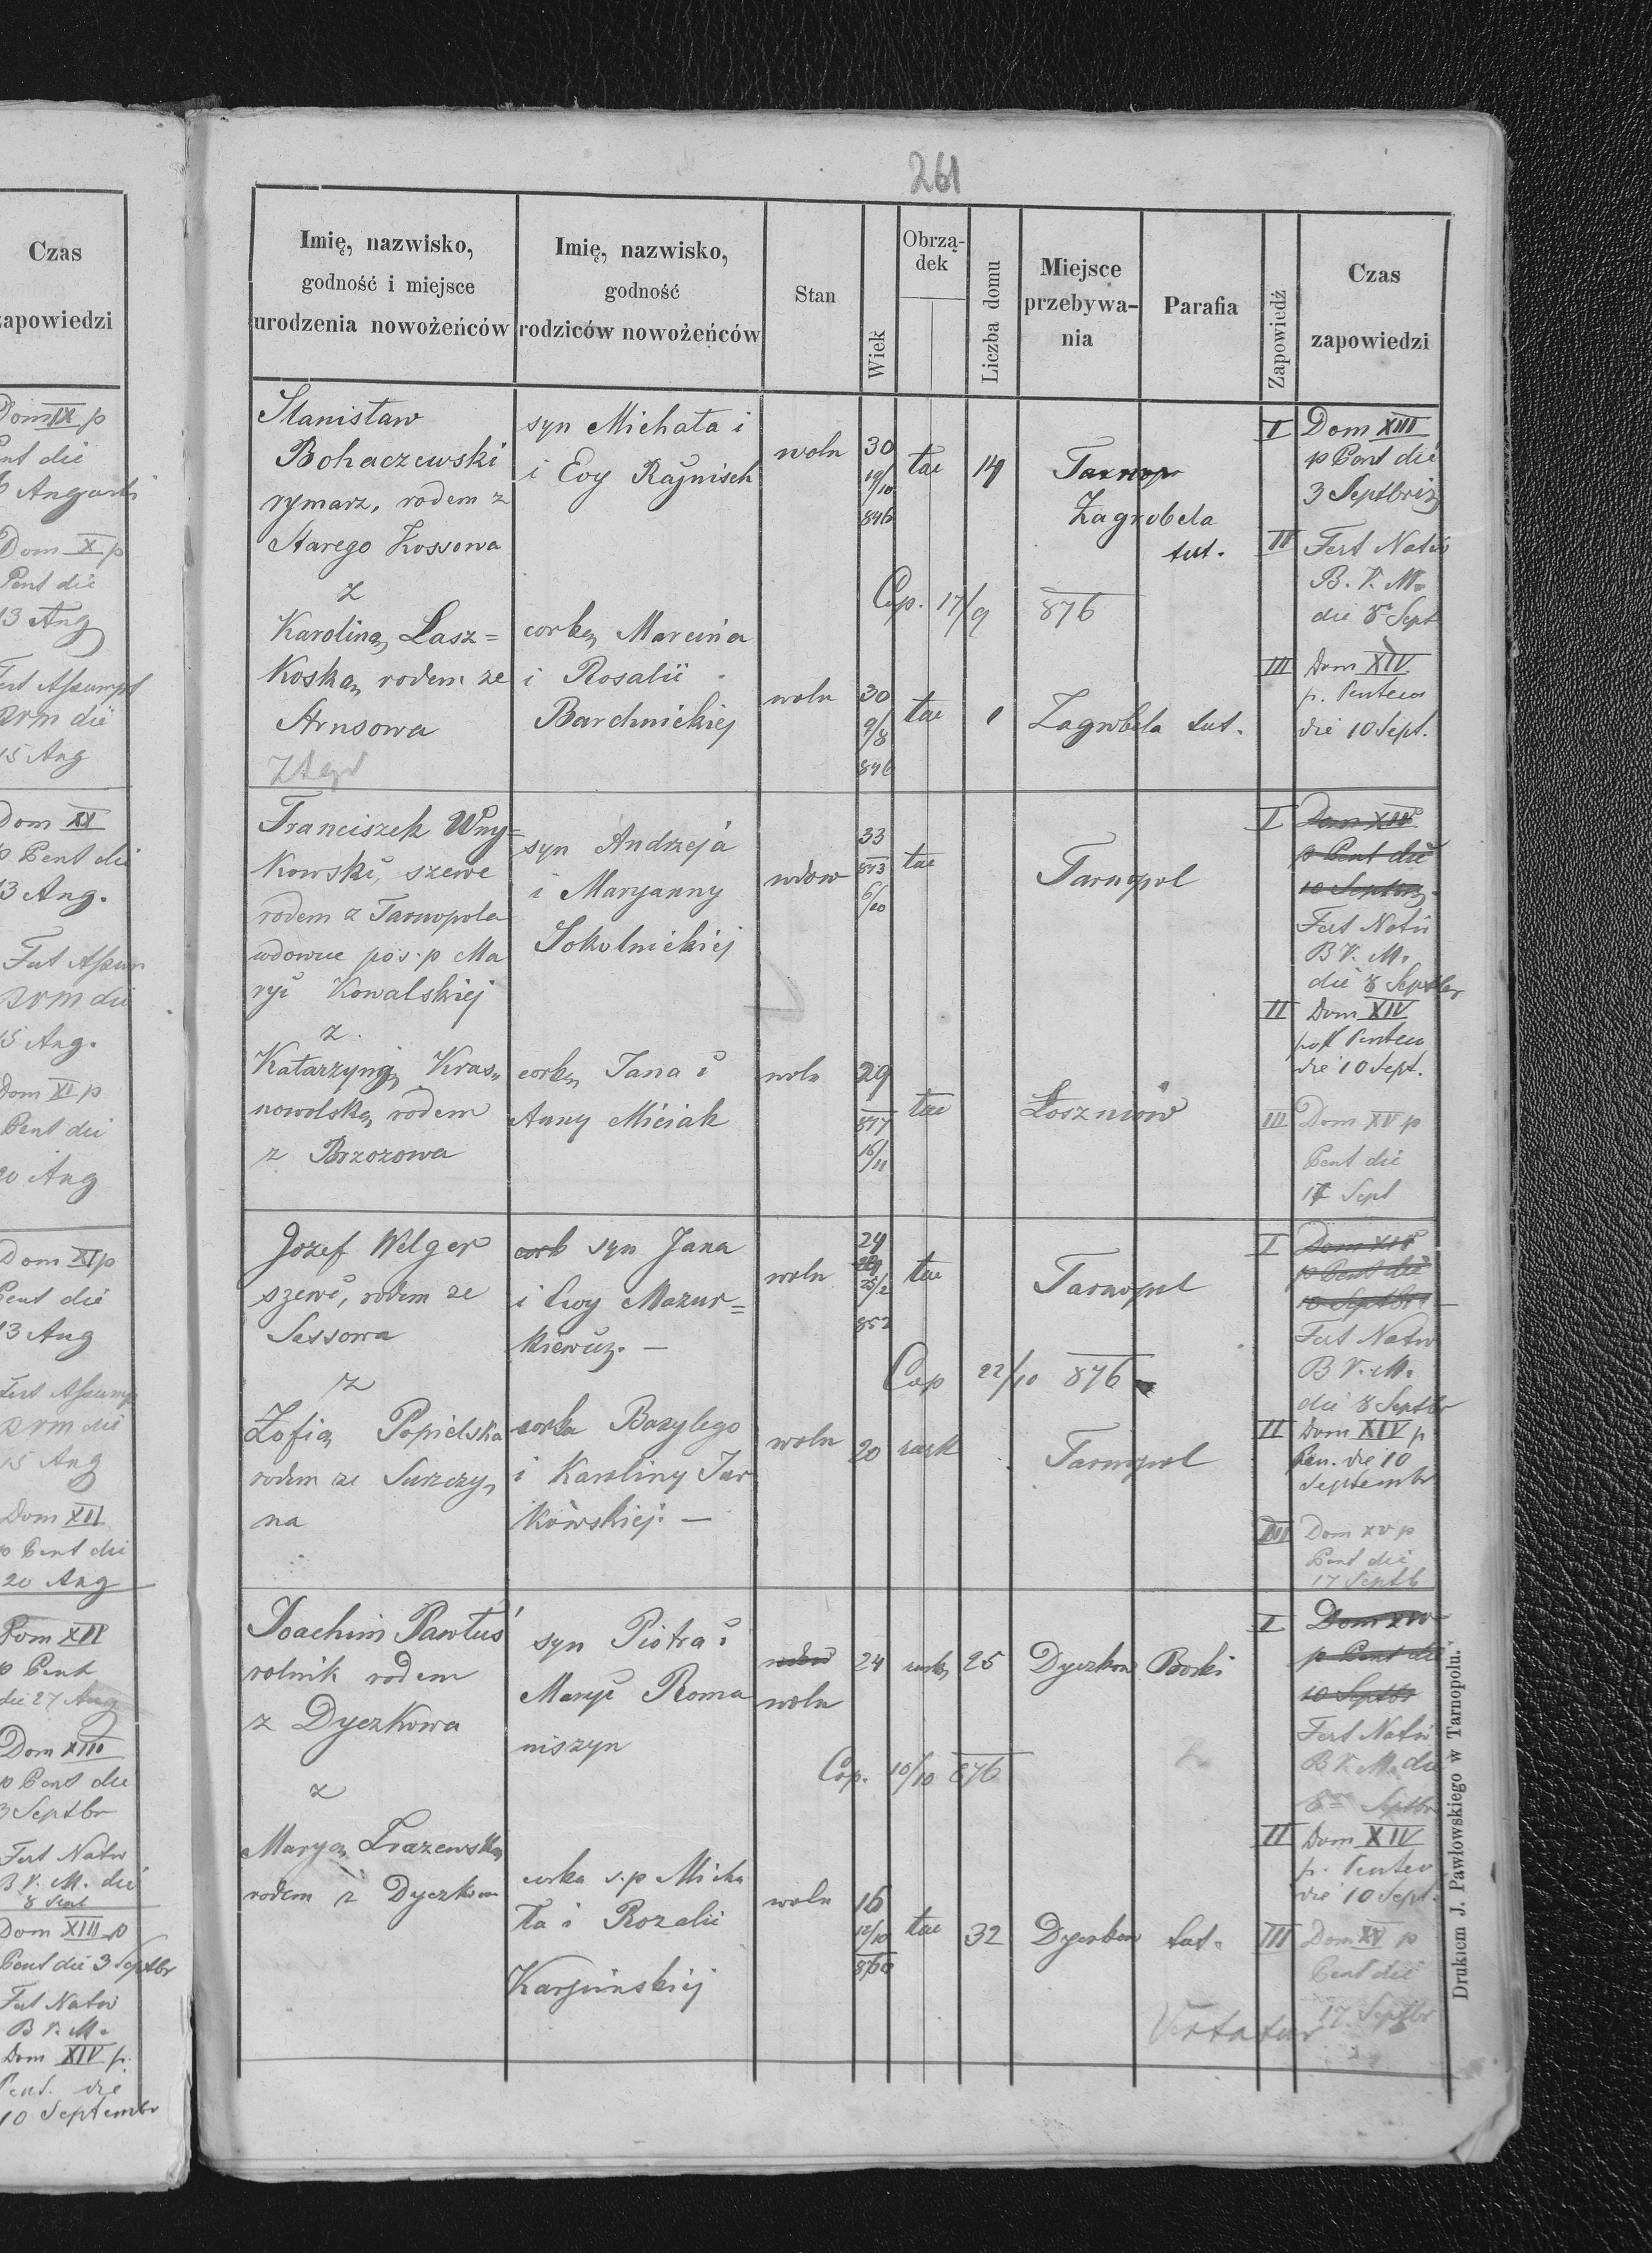 Czas
zapowiedzi
Dom IX p
Pent die
6 Augusti
Dom X p
Pent die
13 Aug
Fest Assumpt
BVM die
15 Aug
Dom XI
p Pent die
13 Aug.
Fest Assum
BVM die
15 Aug.
Dom XI p
Pent die
20 Aug
Dom XI p
Pent die
13 Aug
Fest Assump
BVM die
15 Aug
Dom XII
p Pent die
20 Aug
Dom XII
p Pent
die 27 Aug
Dom XIII
p Pent die
3 Septbr
Fest Nativ
B V. M. die
8 Sept
Dom XIII p
Pent die 3 Septbr
Fest Nativ
B V. M.
Dom XIV p.
Pent. die
10 Septembr
261
Imię, nazwisko,
godność i miejsce
urodzenia nowożeńców
Imię, nazwisko,
godność
rodziców nowożeńców
Stan
Wiek
Obrzą-
dek
Liczba domu
Miejsce
przebywa-
nia
Parafia
Zapowiedź
Czas
zapowiedzi
Stanisław
Bohaczewski
rymarz, rodem z
Starego Kossowa
z
Karoliną Lasz=
Koską rodem ze
Arnsowa
syn Michała i
i Ewy Rajnisch
corką Marcina
i Rosalii
Barchnickiej
woln
30
19/10
846
tac
14
Tarnop
Zagrobela
tut.
Cop. 17/9 876
woln
30
9/8
846
tac
1
Zagrobela tut.
I Dom XIII
p Pent die
3 Septbris
II Fest Nativ
B. V. M.
die 8 Sept
III Dom XIV
p. Pentecos
die 10 Sept.
Franciszek Wny=
Kowski, szewc
rodem z Tarnopola
wdowiec po ś.p Ma
ryi Kowalskiej
z
Katarzyną Kras„
nowolską rodem
z Brzozowa
syn Andrzeja
i Maryanny
Sokolnickiej
corką Jana i
Anny Misiak
wdow
33
843
6/10
tac
Tarnopol
woln
29
847
16/11
tac
Łoszniów
I Dom XIV
p Pent die
10 Septbris
Fest Nativ
B V. M.
die 8 Septbr
II Dom XIV
post Pentecos
die 10 Sept.
III Dom XV p
Pent die
17 Sept
Jozef Welger
szewc, rodem ze
Sassowa
z
Zofią Popielską
rodem ze Surczy„
na
corb syn Jana
i Ewy Mazur=
kiewicz. —
corka Bazylego
i Karoliny Jur
kowskiej. —
woln
24
25/2
852
tac
Tarnopol
Cap 22/10 876
woln 20 rusk
Tarnopol
I Dom XIV
p Pent die
10 Septbr
Fest Nativ
B V. M.
die 8 Septbr
II Dom XIV p
Pen. die 10
Septembr
III Dom XV p
Pent die
17 Septb
Joachim Pawłuś
rolnik rodem
z Dyczkowa
z
Maryą Łrazewską
rodem z Dyczkowa
syn Piotra i
Maryi Roma
niszyn
corka s.p Micha
ła i Rozalii
Karpińskiej
wdow
woln
24 rusk 25 Dyczkow Borki
Cop. 10/10 876
woln
16
12/10
860
tac 32 Dyczkow tut.
I Dom XIV
p Pent die
10 Septbr
Fest Nativ
B V. M. die
8 Septbr
II Dom XIV
p. Pentec
die 10 Sept.
III Dom XV p
Pent die
17 Septbr
Vertatur
Drukiem J. Pawłowskiego w Tarnopolu.